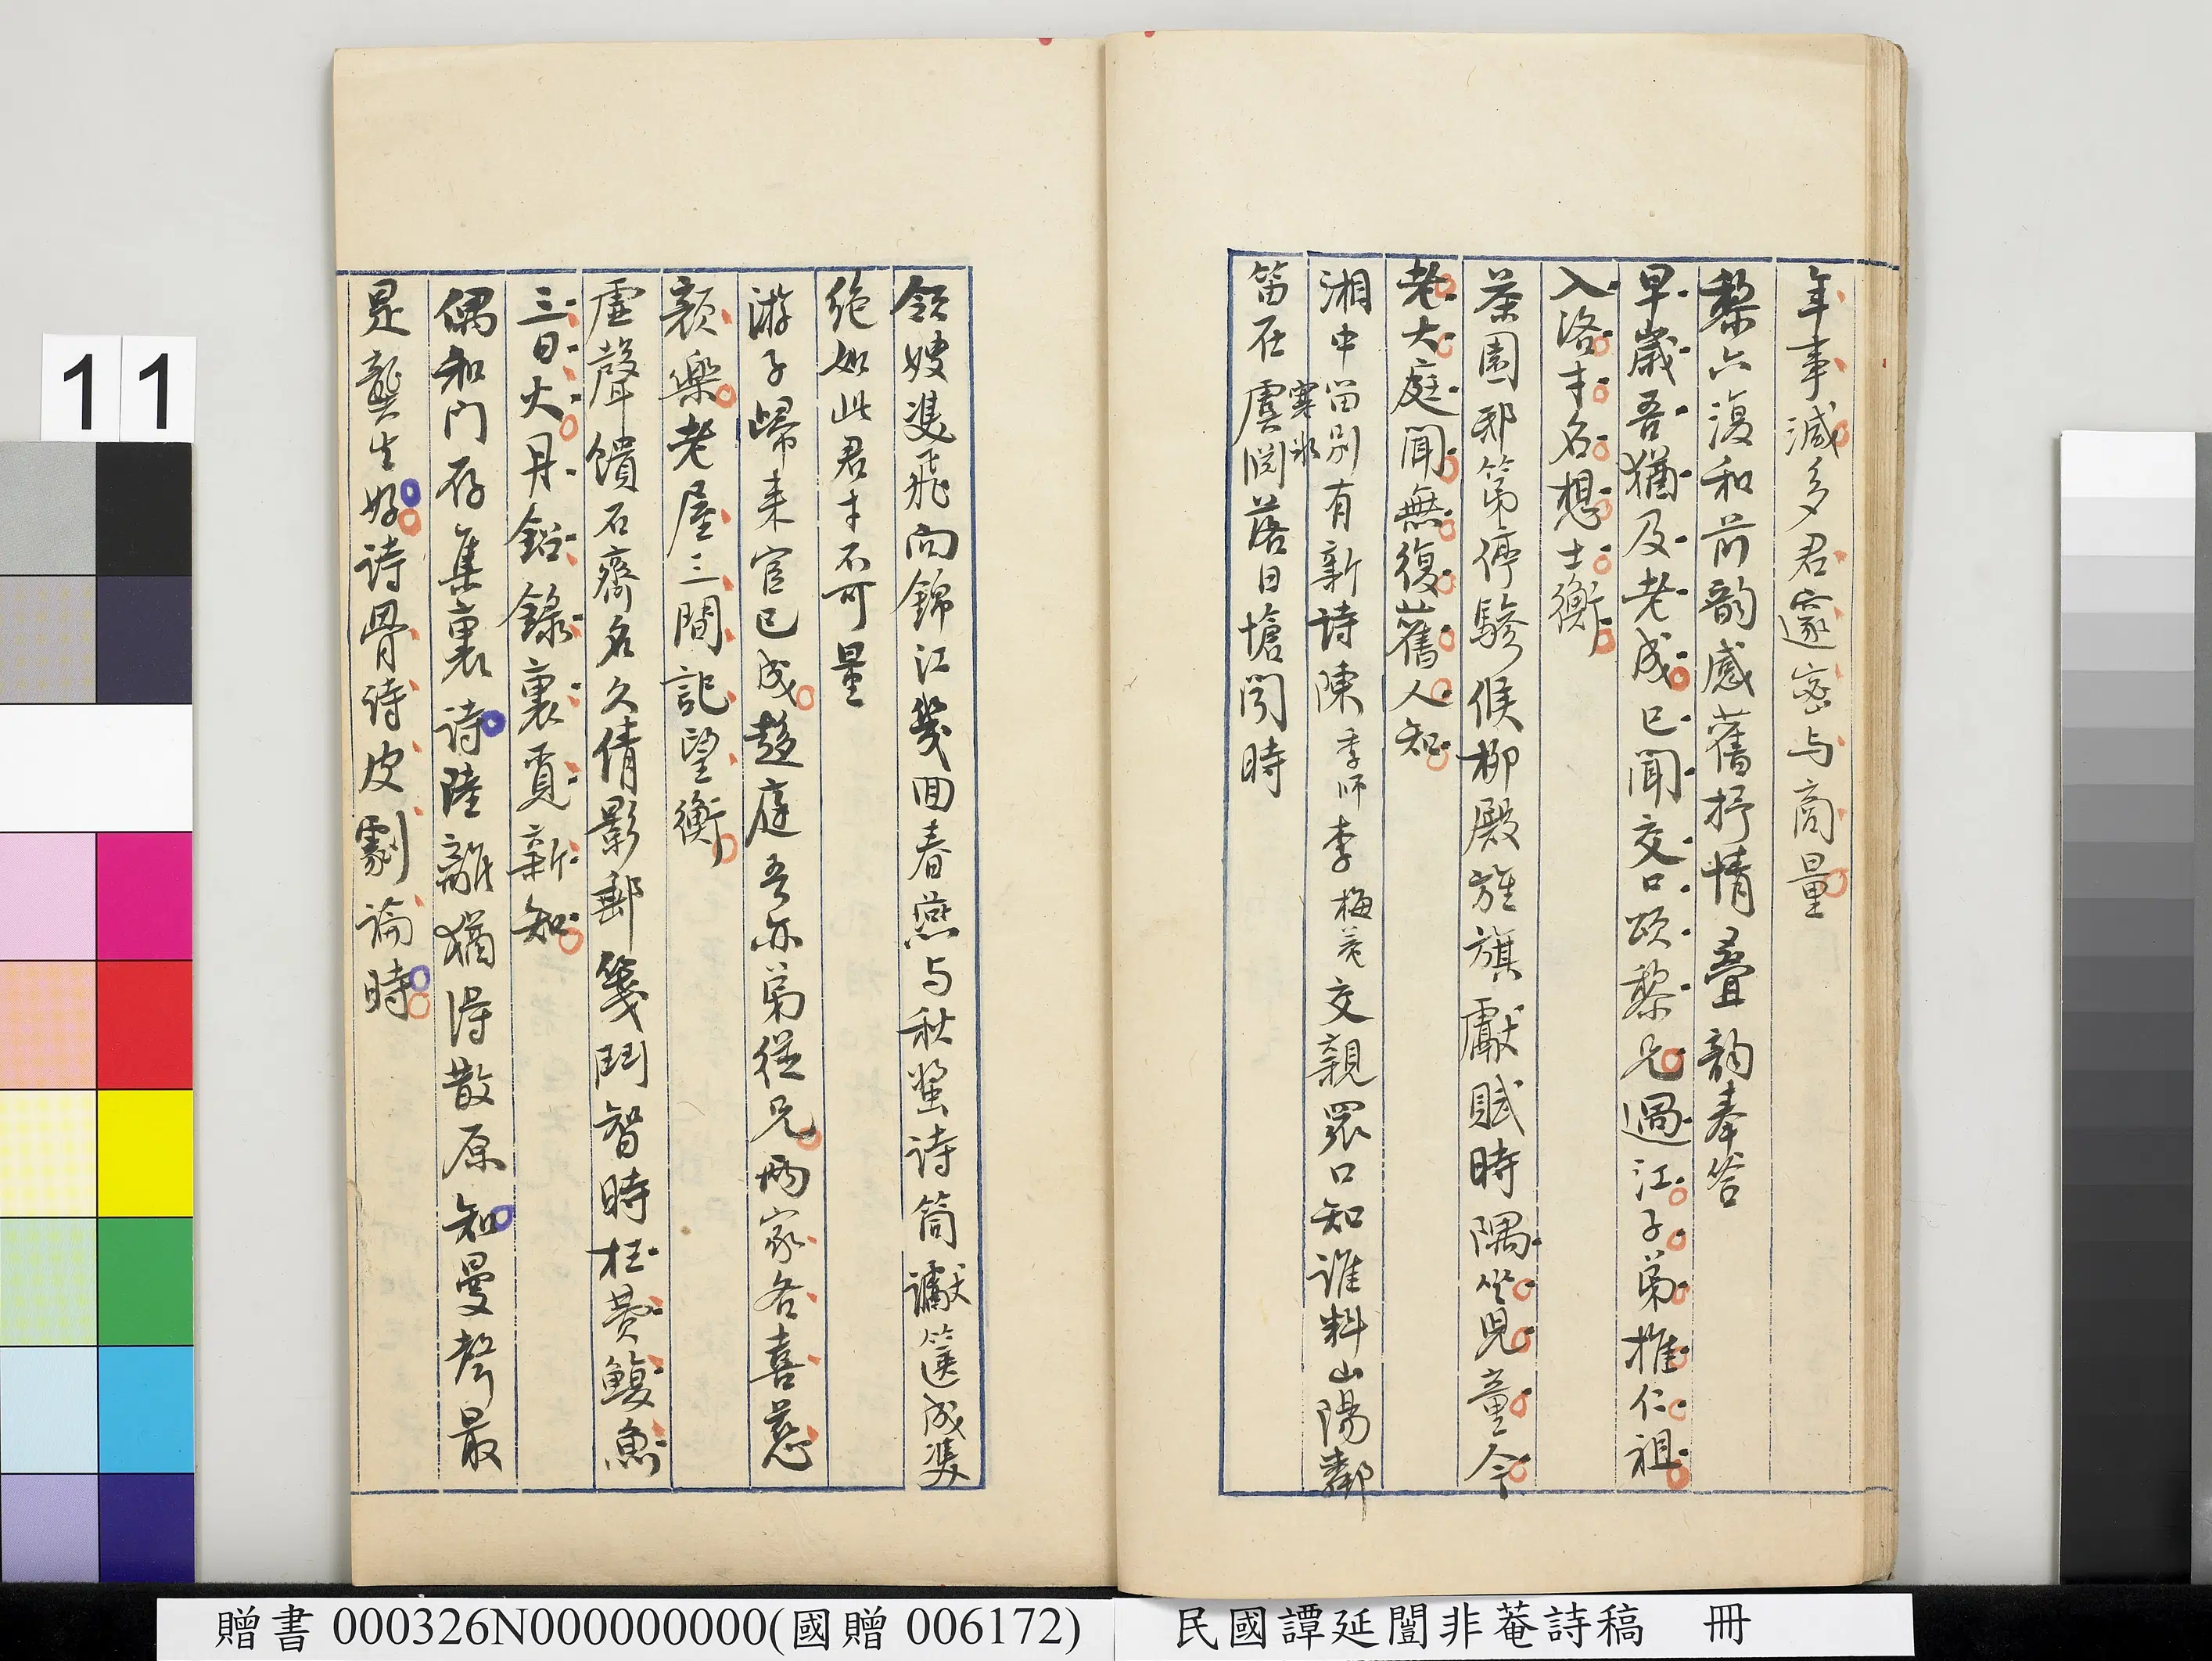 年事減多君邃密与商量
黎六復和前韵感舊抒情疊韵奉答
早歲吾猶及老成已聞交口頌黎兄過江子弟推仁祖
入洛才名想士衡
茶園邸第停驂候柳殿旌旗獻賦時隅坐兒童今
老大庭聞無復舊人知
湘中留别有新詩陳季師李梅菴交親眾口知誰料山陽鄰
寒冰
笛在虞淵落日愴閉時
領嫂雙飛向錦江幾回春燕与秋螿詩筒讞篋成雙
絶如此君才不可量
游子歸来宦已成趨庭吾亦弟從兄两家各喜慈
顏樂老屋三間記望衡
虛聲饋石齋名久倩影郵箋鬥智時枉費鰒魚
三日大丹鉛錄裏覓新知
偶和門存集裏詩陸離猶得散原知曼聲最
是龔生好詩骨詩皮劇論時
11
贈書 000326N000000000(國贈 006172)
民國譚延闓非菴詩稿 冊